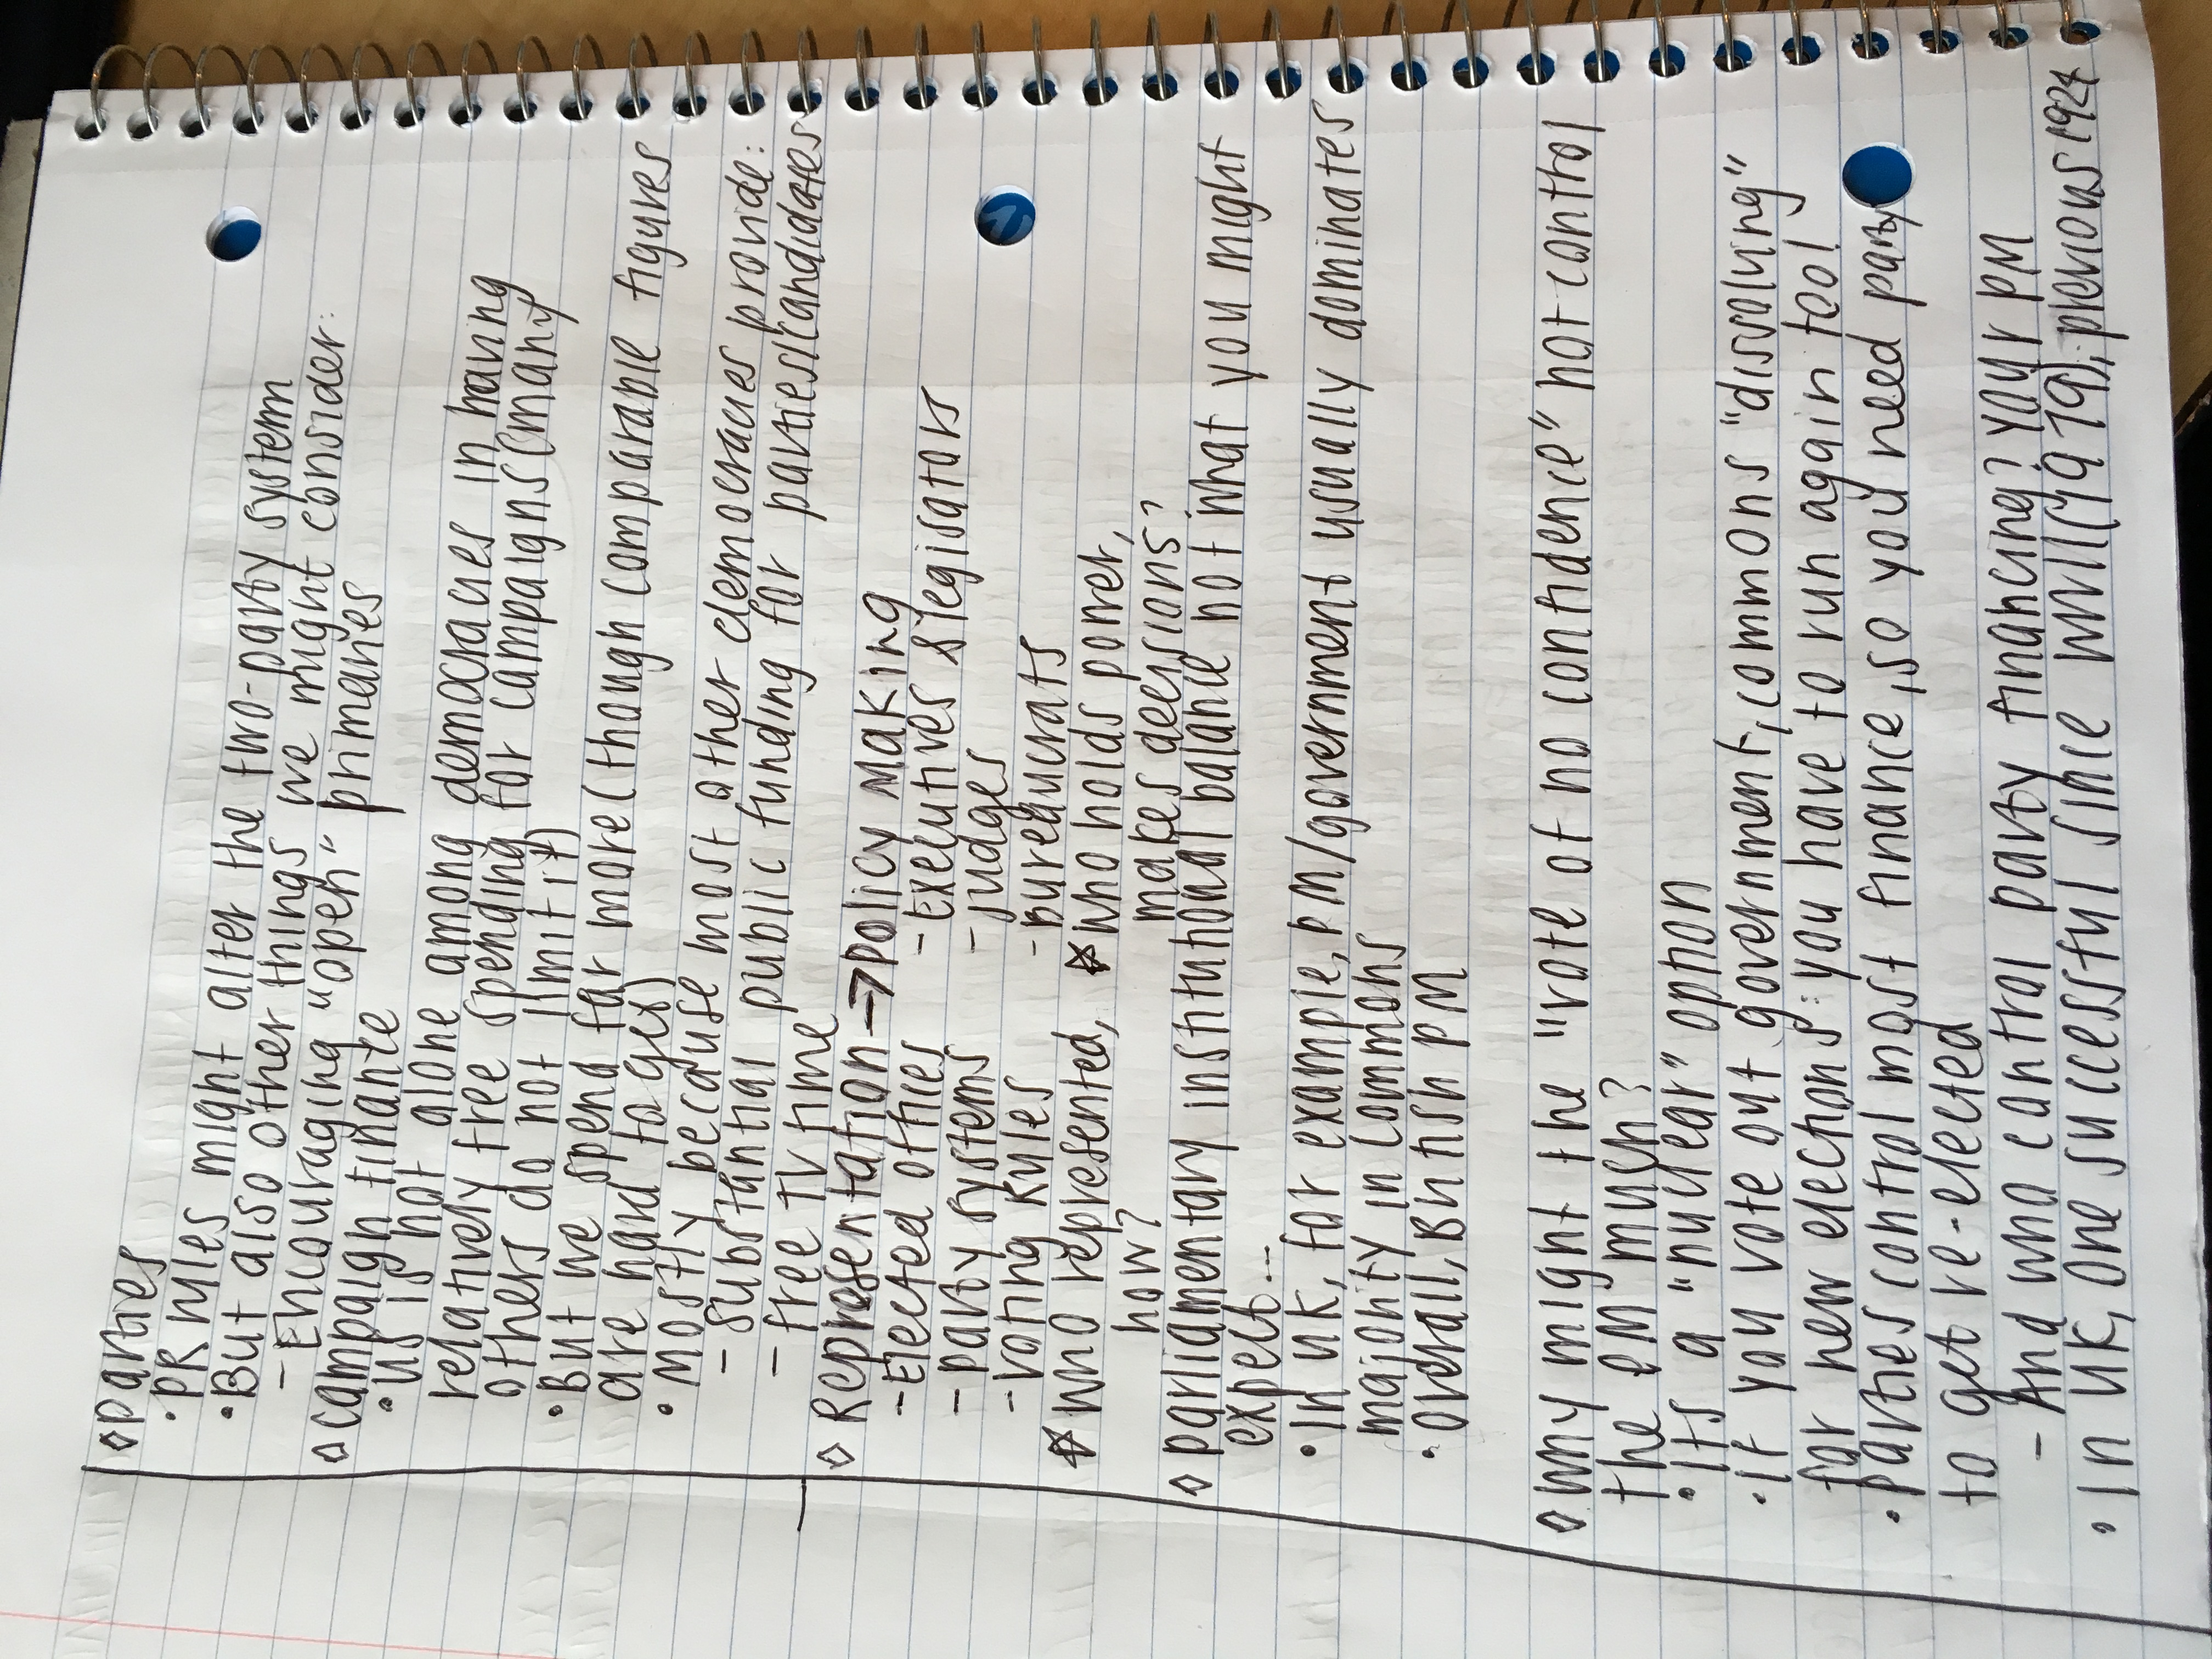 ◇ parties
• PR rules might alter the two-party system
• But also other things we might consider:
- Encouraging "open" primaries
◇ campaign finance
• US is not alone among democracies in having
relatively free spending for campaigns (many
others do not limit it)
• But we spend far more (though comparable figures
are hard to get)
• Mostly because most other democracies provide:
- Substantial public funding for parties/candidates
- free TV time
◇ Representation → policy making
- Elected offices - Executives & legisators
- party systems - judges
- voting rules - Bureaucrats
☆ who represented, ☆ who holds power,
how? makes decisions?
◇ parliamentary institutional balance not what you might
expect...
• In UK, for example, PM/government usually dominates
majority in commons
• overall, British PM
◇ why might the "vote of no confidence" not control
the PM much?
• Its a "nuclear" option
• if you vote out government, commons "dissolving"
for new elections: you have to run again too!
• parties control most finance, so you need party
to get re-elected
- And who control party financing? Your PM
• In UK, one successful since WWII (1979), previous 1924